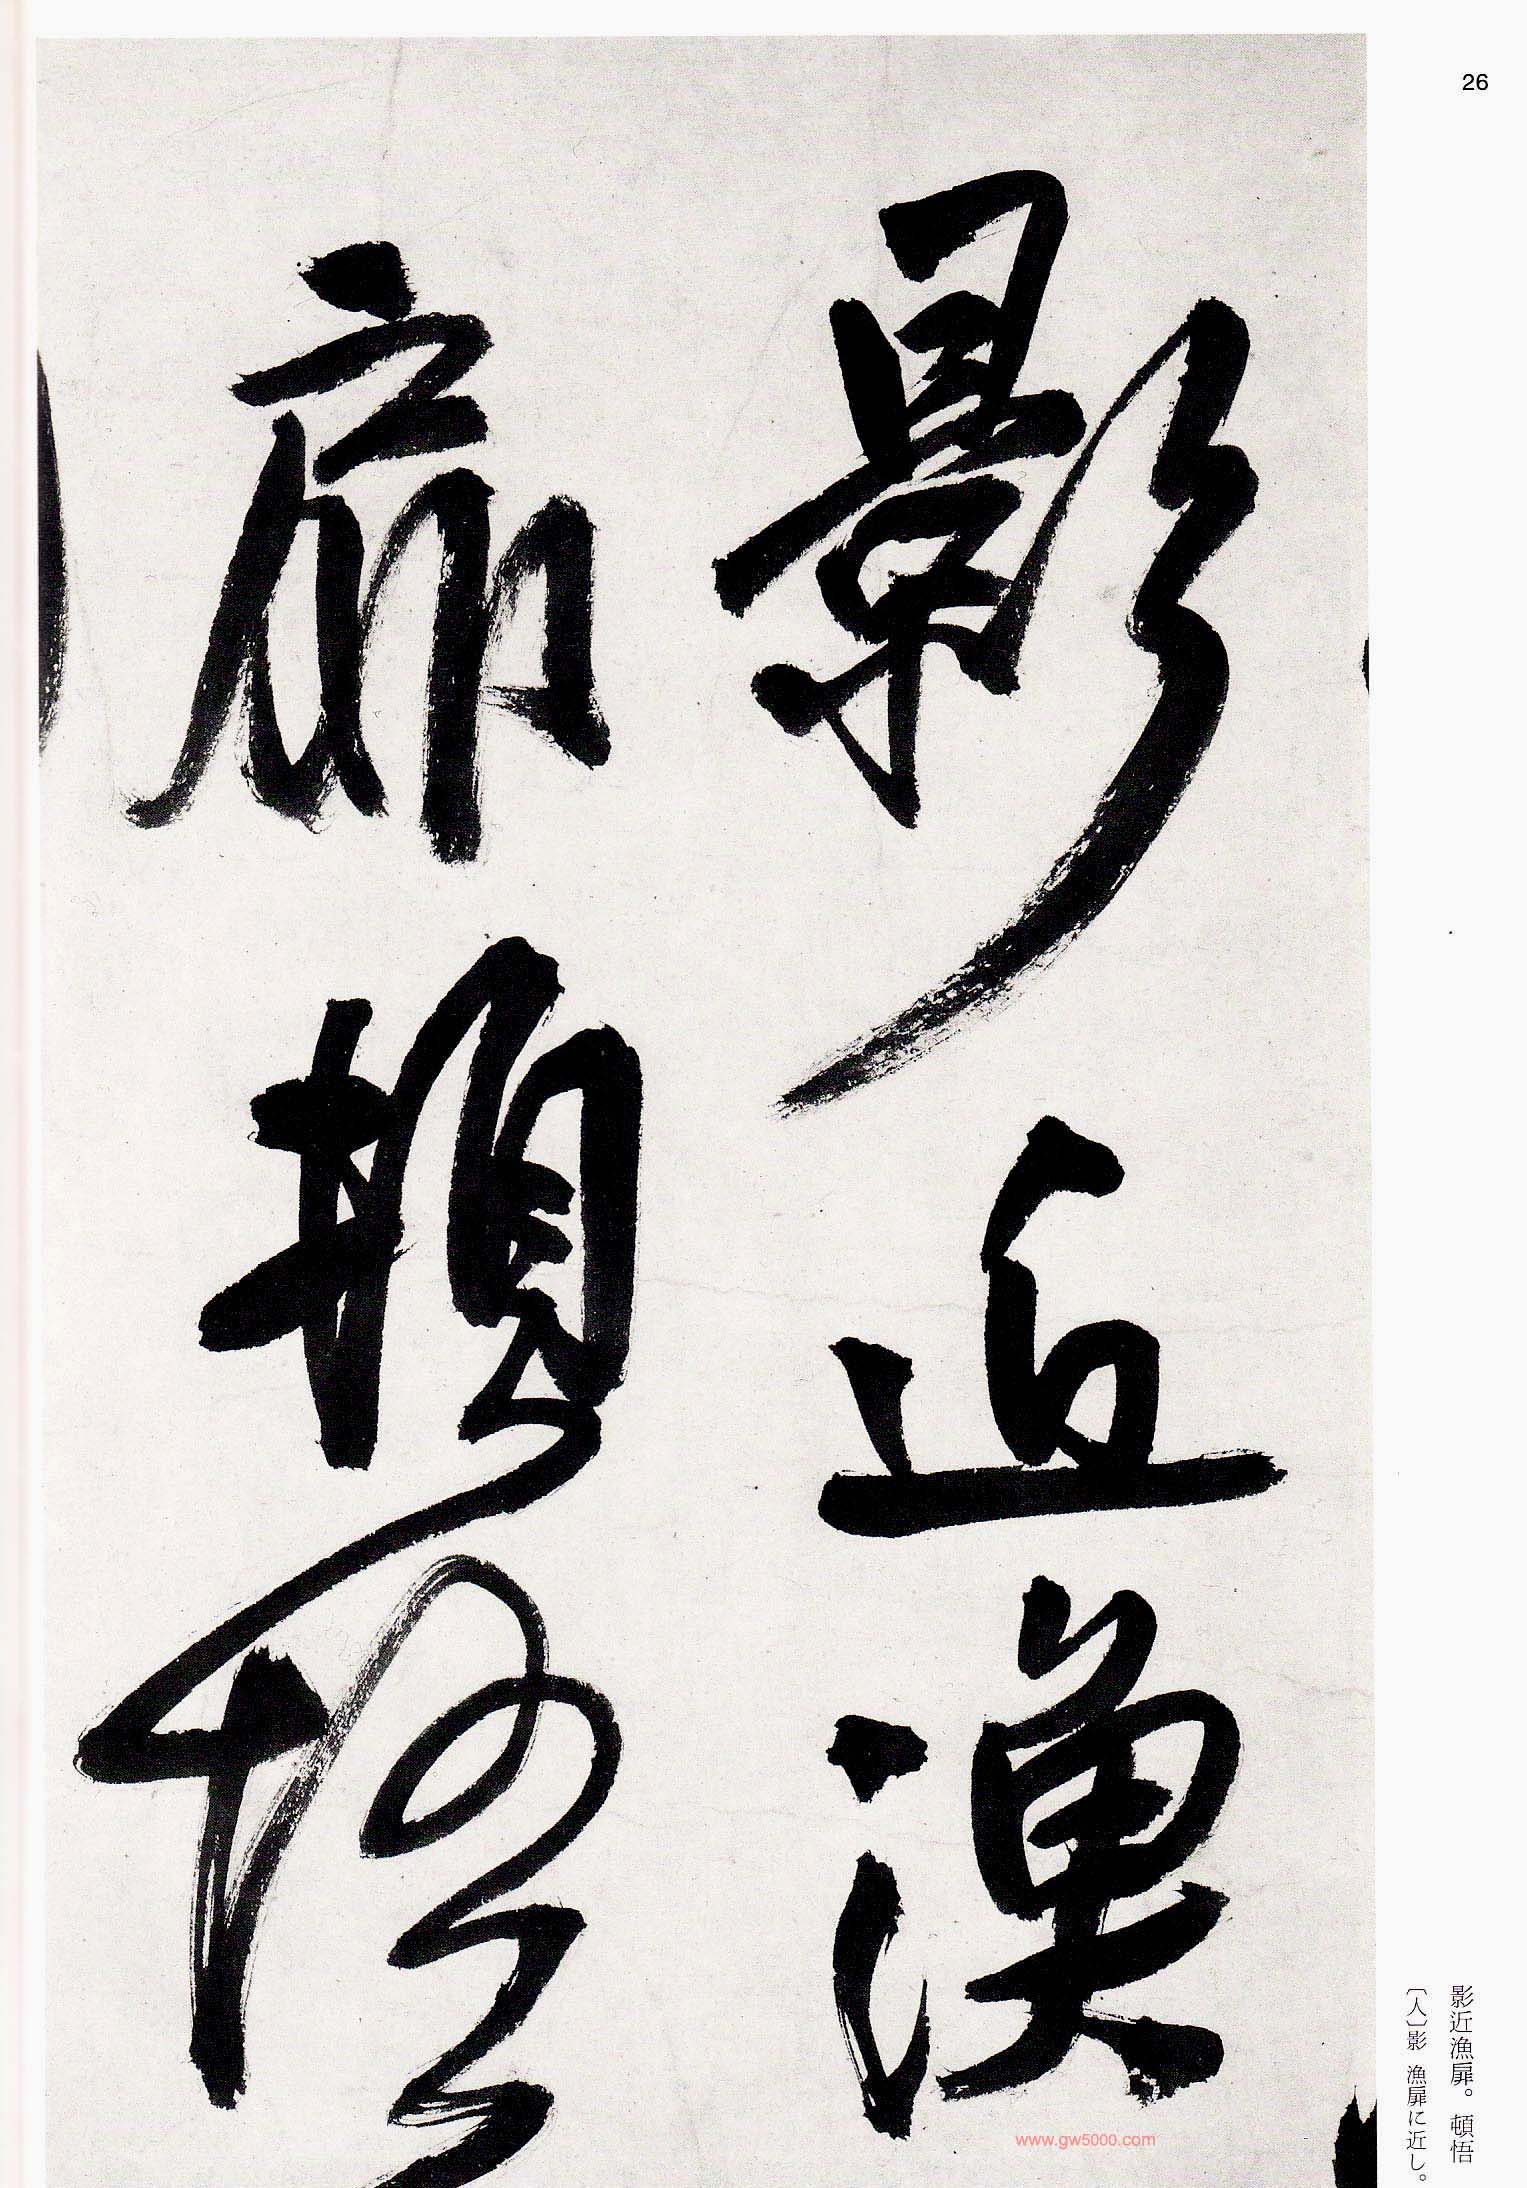 26
影近漁
扉頓悟
影近漁扉。頓悟
〔人〕影 漁扉に近し。
www.gw5000.com